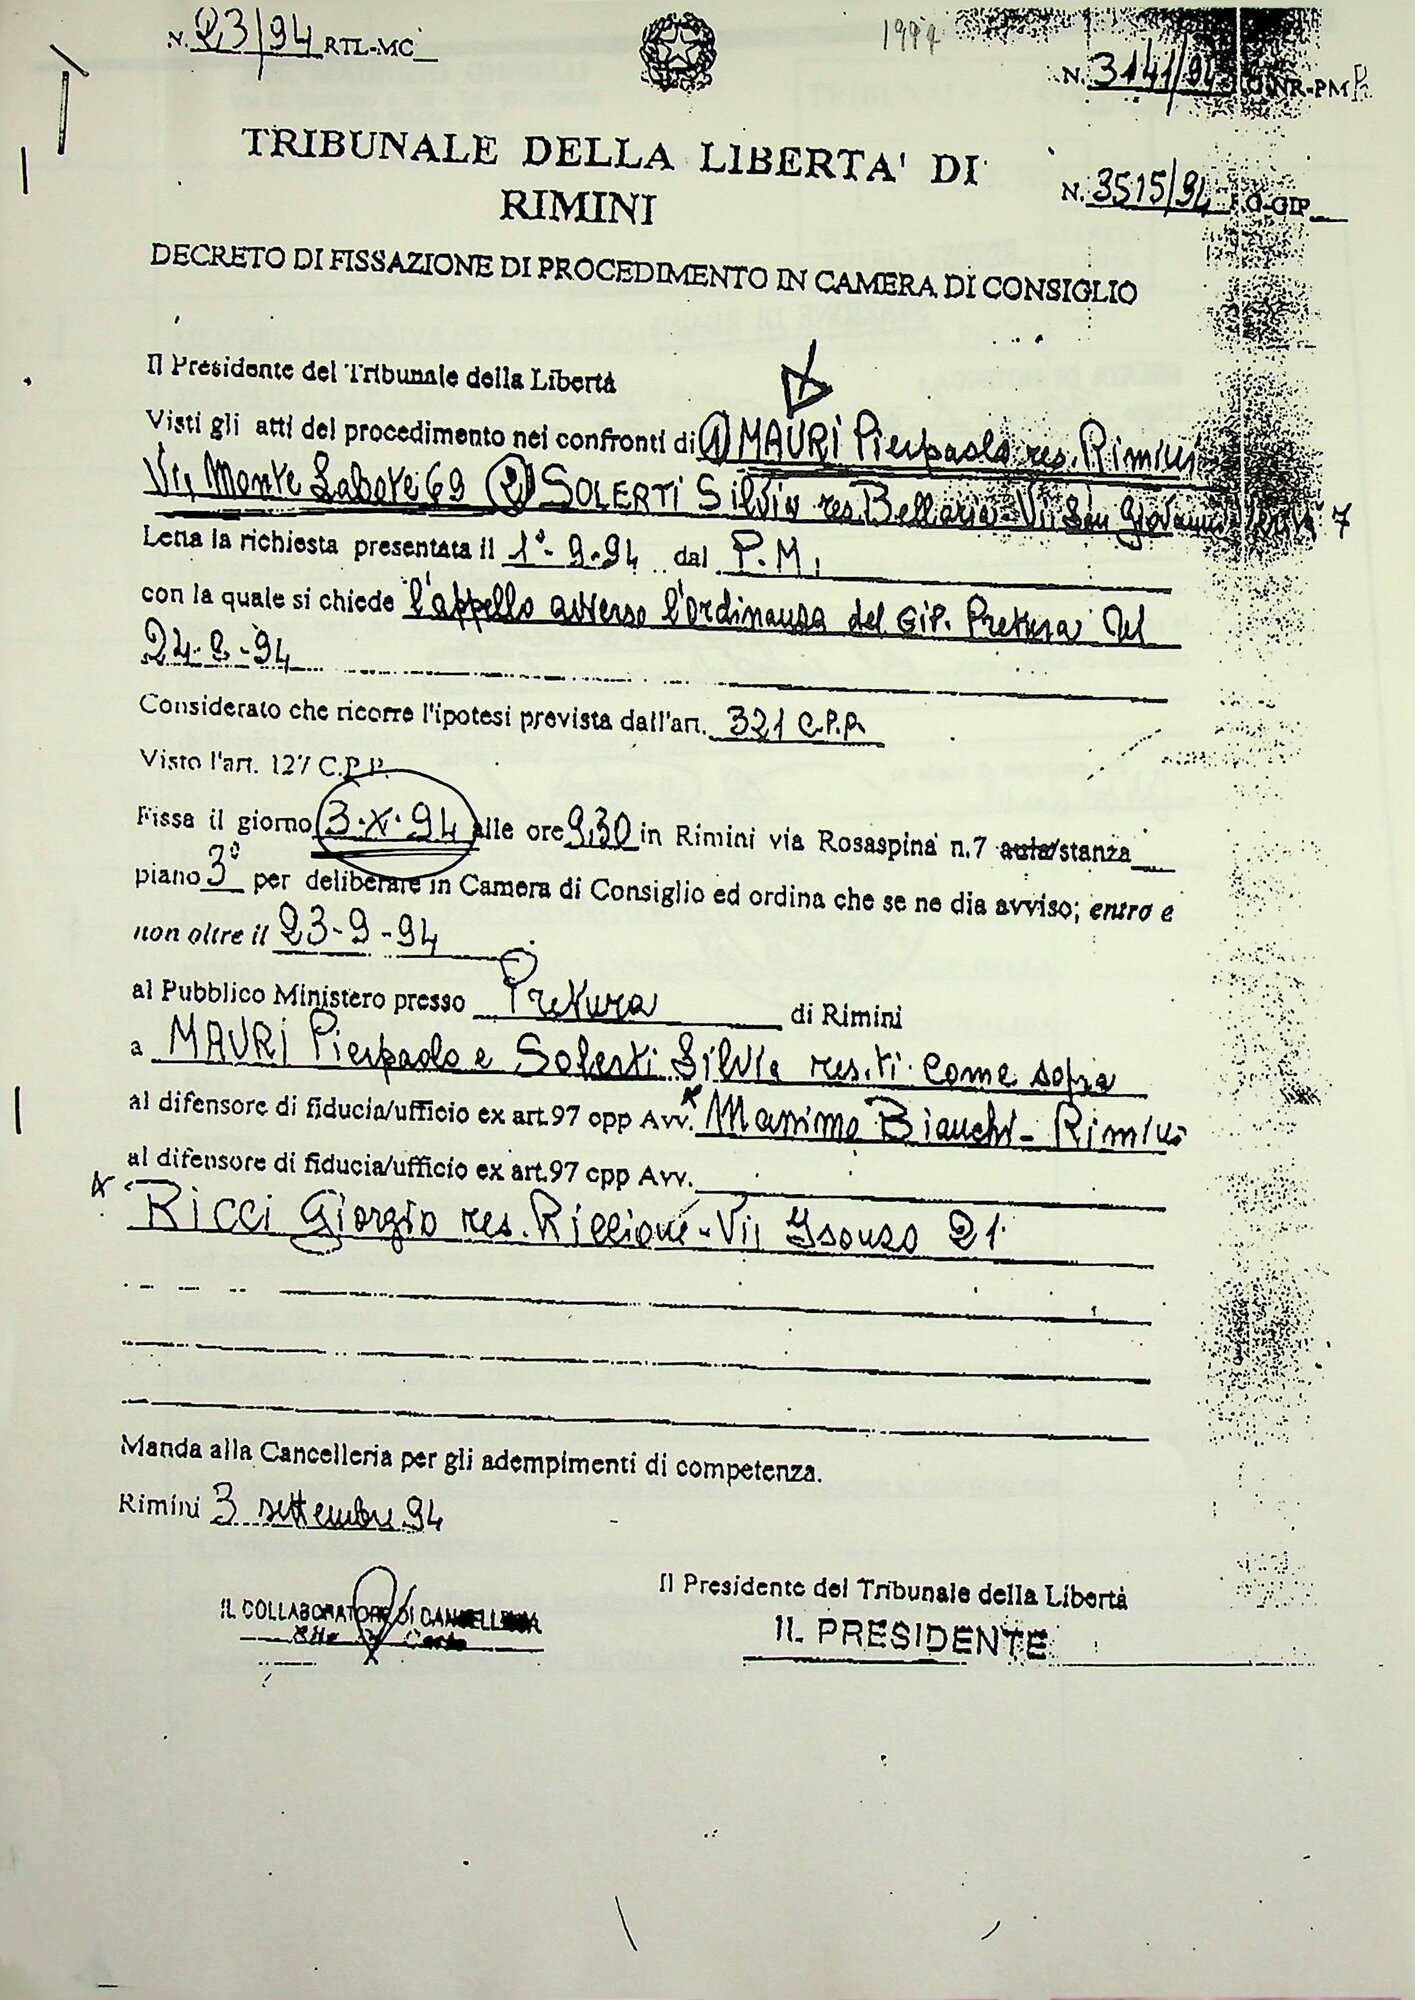 N. 23/94 RTL-MC
1994
N. 3141/94 NR-PM
TRIBUNALE DELLA LIBERTA' DI
RIMINI
N. 3515/94 G-GIP
DECRETO DI FISSAZIONE DI PROCEDIMENTO IN CAMERA DI CONSIGLIO
Il Presidente del Tribunale della Libertà
Visti gli atti del procedimento nei confronti di 1) MAURI Pierpaolo res. Rimini
Via Monte Labate 69 2) SOLERTI Silvia res. Bellaria - Via San Giovanni 7
Letta la richiesta presentata il 1°-9-94 dal P.M.
con la quale si chiede l'appello avverso l'ordinanza del GIP. Pretura del
24-8-94
Considerato che ricorre l'ipotesi prevista dall'art. 321 C.P.P.
Visto l'art. 127 C.P.P.
Fissa il giorno 3.X.94 alle ore 9,30 in Rimini via Rosaspina n.7 aula/stanza
piano 3° per deliberare in Camera di Consiglio ed ordina che se ne dia avviso; entro e
non oltre il 23-9-94
al Pubblico Ministero presso Pretura di Rimini
a MAURI Pierpaolo e Solerti Silvia res.ti come sopra
al difensore di fiducia/ufficio ex art.97 cpp Avv. Massimo Bianchi - Rimini
al difensore di fiducia/ufficio ex art.97 cpp Avv.
Ricci Giorgio res. Riccione - Via Isonzo 21
Manda alla Cancelleria per gli adempimenti di competenza.
Rimini 3 settembre 94
Il Presidente del Tribunale della Libertà
IL COLLABORATORE DI CANCELLERIA
IL PRESIDENTE